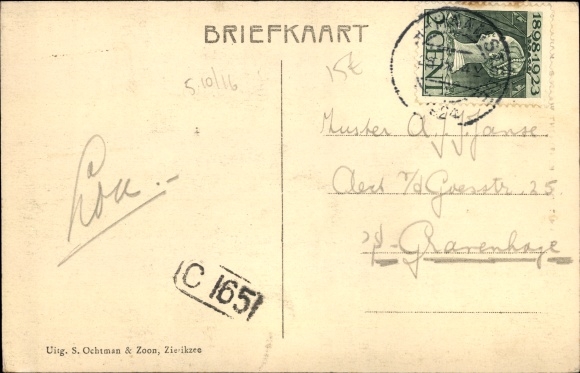 BRIEFKAART
1898-1923
2 CENT
24
15€
5 10/16
Zuster A. J. J. Janse
Aert v/d Goesstr 25
's-Gravenhage
C 165
Uitg. S. Ochtman & Zoon, Zierikzee